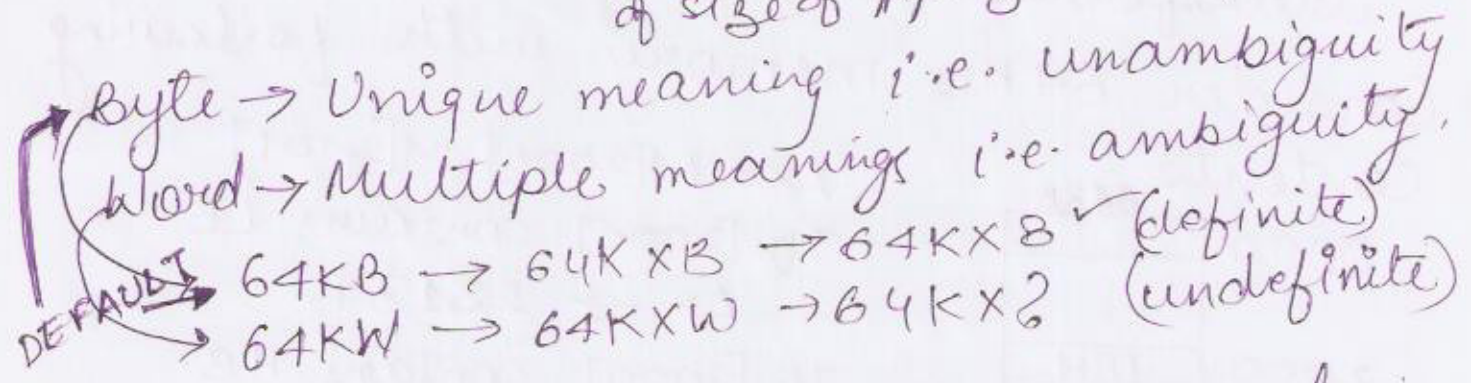 of size of
Byte → Unique meaning i.e. unambiguity
Word → Multiple meanings i.e. ambiguity.
DEFAULT 64KB → 64K X B → 64K X 8 ✓ (definite)
64KW → 64K X W → 64K X ? (undefinite)